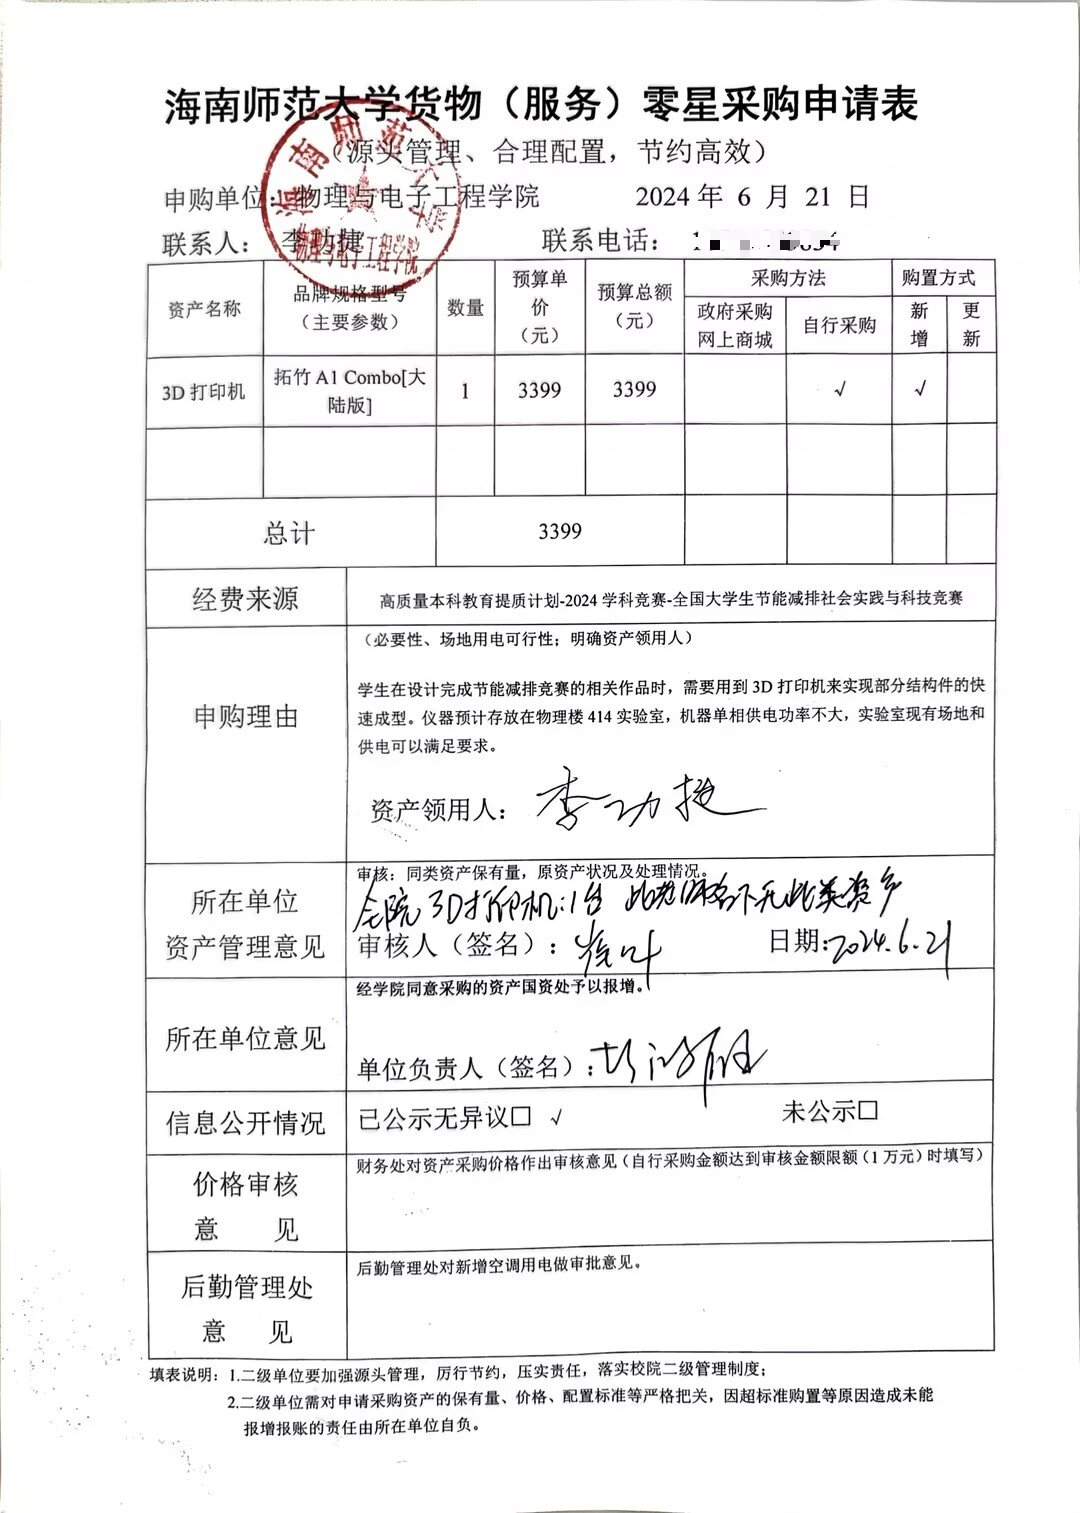 海南师范大学货物（服务）零星采购申请表
（源头管理、合理配置，节约高效）
申购单位：物理与电子工程学院 2024 年 6 月 21 日
联系人： 李功捷 联系电话：
海南师范大学
物理与电子工程学院
资产名称 品牌规格型号（主要参数） 数量 预算单价（元） 预算总额（元） 采购方法 购置方式
政府采购网上商城 自行采购 新增 更新
3D 打印机 拓竹 A1 Combo[大陆版] 1 3399 3399 √ √
总计 3399
经费来源 高质量本科教育提质计划-2024 学科竞赛-全国大学生节能减排社会实践与科技竞赛
申购理由
（必要性、场地用电可行性；明确资产领用人）
学生在设计完成节能减排竞赛的相关作品时，需要用到 3D 打印机来实现部分结构件的快
速成型。仪器预计存放在物理楼 414 实验室，机器单相供电功率不大，实验室现有场地和
供电可以满足要求。
资产领用人： 李功捷
所在单位
资产管理意见
审核：同类资产保有量，原资产状况及处理情况。
全院3D打印机:1台 此老师名下无此类资产
审核人（签名）： 日期:2024.6.21
所在单位意见
经学院同意采购的资产国资处予以报增。
单位负责人（签名）：
信息公开情况 已公示无异议□ √ 未公示□
价格审核
意 见
财务处对资产采购价格作出审核意见（自行采购金额达到审核金额限额（1 万元）时填写）
后勤管理处
意 见
后勤管理处对新增空调用电做审批意见。
填表说明：1.二级单位要加强源头管理，厉行节约，压实责任，落实校院二级管理制度；
2.二级单位需对申请采购资产的保有量、价格、配置标准等严格把关，因超标准购置等原因造成未能
报增报账的责任由所在单位自负。